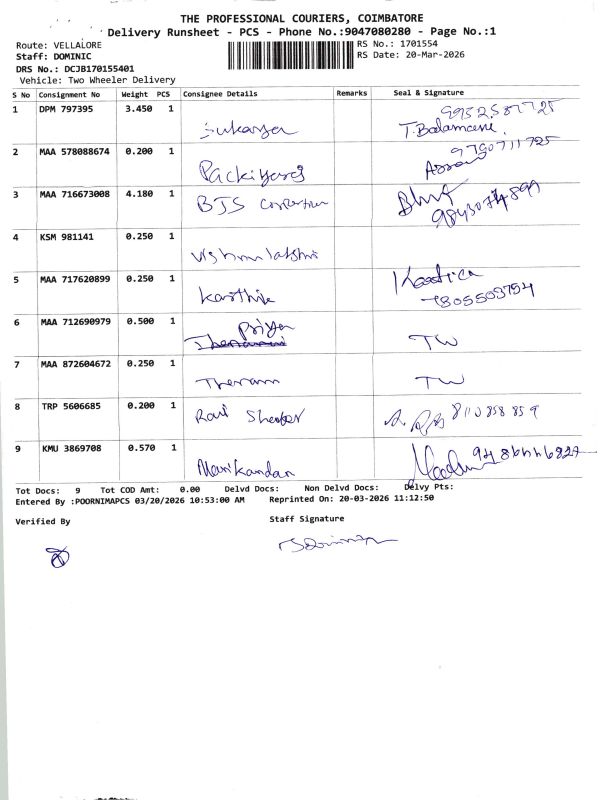 THE PROFESSIONAL COURIERS, COIMBATORE
Delivery Runsheet - PCS - Phone No.:9047080280 - Page No.:1
Route: VELLALORE
RS No.: 1701554
Staff: DOMINIC
RS Date: 20-Mar-2026
DRS No.: DCJB170155401
Vehicle: Two Wheeler Delivery
S No Consignment No Weight PCS Consignee Details Remarks Seal & Signature
1 DPM 797395 3.450 1 Sukanya T. Balamani
2 MAA 578088674 0.200 1 Packiyaraj 9790711725
3 MAA 716673008 4.180 1 BJS
4 KSM 981141 0.250 1
5 MAA 717620899 0.250 1 Karthik
6 MAA 712690979 0.500 1 Priya TW
7 MAA 872604672 0.250 1 TW
8 TRP 5606685 0.200 1 Ravi 8110858859
9 KMU 3869708 0.570 1 Manikandan
Tot Docs: 9 Tot COD Amt: 0.00 Delvd Docs: Non Delvd Docs: Delvy Pts:
Entered By :POORNIMAPCS 03/20/2026 10:53:00 AM Reprinted On: 20-03-2026 11:12:50
Verified By Staff Signature